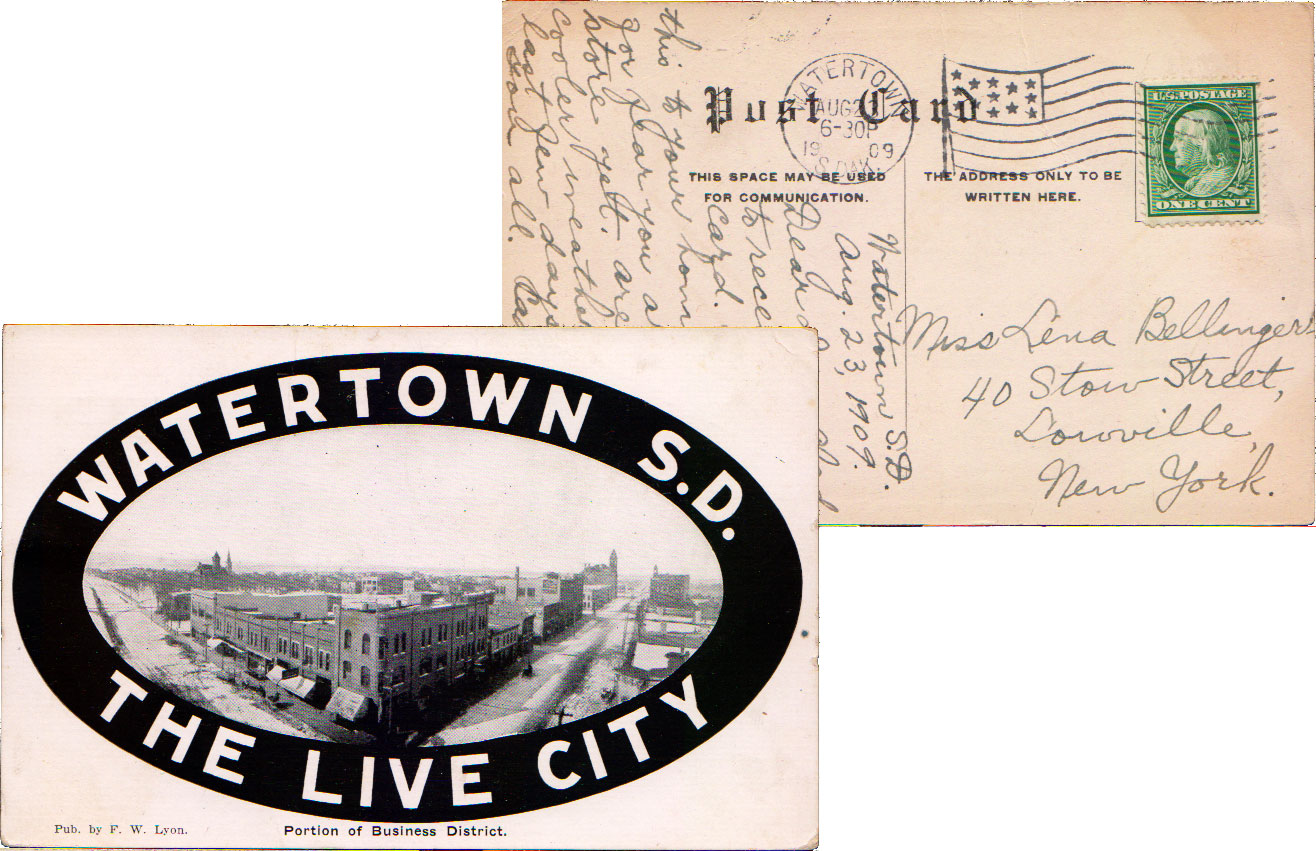 Post Card
WATERTOWN
AUG 2
6-30P
1909
S. DAK.
U.S. POSTAGE
ONE CENT
THIS SPACE MAY BE USED
FOR COMMUNICATION.
THE ADDRESS ONLY TO BE
WRITTEN HERE.
Watertown S.D.
Aug. 23, 1909.
Dear
to rece
card.
this to your hom
for fear you a
store yet. are
cooler weathe
last few days
you all.
Miss Lena Bellinger
40 Stow Street,
Lowville,
New York.
WATERTOWN S.D.
THE LIVE CITY
Pub. by F. W. Lyon.
Portion of Business District.